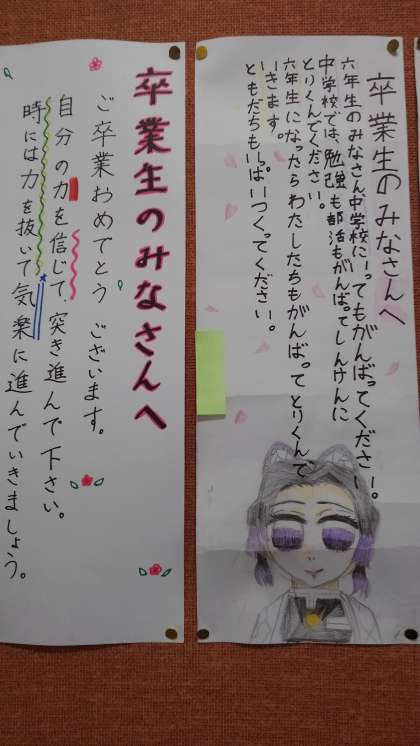 卒業生のみなさんへ
六年生のみなさん中学校にいってもがんばってください。
中学校では、勉強も部活もがんばってしんけんに
とりくんでください。
六年生になったらわたしたちもがんばってとりくんで
いきます。
ともだちもいっぱいつくってください。
卒業生のみなさんへ
ご卒業おめでとうございます。
自分の力を信じて、突き進んで下さい。
時には力を抜いて気楽に進んでいきましょう。